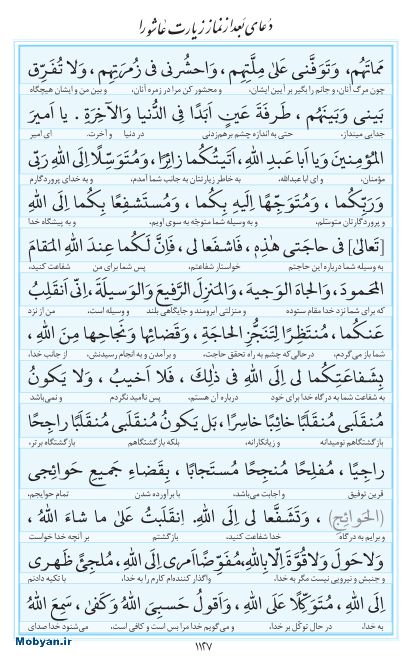 دعای بعد از نماز زیارت عاشورا
مَماتَهُم، وَتَوَفَّنی عَلیٰ مِلَّتِهِم، وَاحشُرنی فی زُمرَتِهِم، وَلا تُفَرِّق
چون مرگ آنان، و جانم را بگیر بر آیین ایشان، و محشور کن مرا در زمره آنان، و بین من و ایشان هیچگاه
بَینی وَبَینَهُم ، طَرفَةَ عَینٍ اَبَدًا فِی الدُّنیا وَالآخِرَةِ . یا اَمیرَ
جدایی مینداز. حتی به اندازه چشم برهم‌زدنی در دنیا و آخرت. ای امیر
المُؤمِنینَ وَیا اَبا عَبدِ اللهِ، اَتَیتُکُما زائِرًا، وَمُتَوَسِّلًا اِلَی اللهِ رَبّی
مؤمنان، و ای ابا عبدالله، به خاطر زیارتتان به جانب شما آمدم. و به خدای پروردگارم
وَرَبِّکُما ، وَمُتَوَجِّهًا اِلَیهِ بِکُما ، وَمُستَشفِعًا بِکُما اِلَی اللهِ
و پروردگارتان متوسّلم، و به وسیله شما متوجّه به سوی اویم. و به پیشگاه خدا
[تَعالیٰ] فی حاجَتی هٰذِهِ ، فَاشفَعا لی ، فَاِنَّ لَکُما عِندَ اللهِ المَقامَ
به وسیله شما درباره این حاجتم خواستار شفاعتم، پس شما برای من شفاعت کنید،
المَحمودَ، وَالجاهَ الوَجیهَ ، وَالمَنزِلَ الرَّفیعَ وَالوَسیلَةَ، اِنّی اَنقَلِبُ
که برای شما نزد خدا مقام ستوده و منزلتی آبرومند و جایگاهی بلند و وسیله است، من از نزد
عَنکُما ، مُنتَظِرًا لِتَنَجُّزِ الحاجَةِ ، وَقَضائِها وَنَجاحِها مِنَ اللهِ ،
شما باز می‌گردم، درحالی‌که چشم به راه تحقق حاجت، و برآمدن و به انجام رسیدنش، از جانب خدا،
بِشَفاعَتِکُما لی اِلَی اللهِ فی ذٰلِکَ ، فَلا اَخیبُ ، وَلا یَکونُ
به شفاعت شما به درگاه خدا برای خود درباره آن هستم، پس ناامید نگردم و نمی‌باشد
مُنقَلَبی مُنقَلَبًا خائِبًا خاسِرًا، بَل یَکونُ مُنقَلَبی مُنقَلَبًا راجِحًا
بازگشتگاهم نومیدانه و زیانکارانه، بلکه بازگشتگاهم بازگشتگاه برتر،
راجِیًا ، مُفلِحًا مُنجِحًا مُستَجابًا ، بِقَضاءِ جَمیعِ حَوائِجی
قرین توفیق و اجابت می‌باشد، با برآورده شدن تمام حوایجم،
(الحَوائِجِ) ، وَتَشَفَّعا لی اِلَی اللهِ. اِنقَلَبتُ عَلیٰ ما شاءَ اللهُ ،
و برایم به درگاه خدا شفاعت کنید. بازگشتم بر آنچه خدا خواست
وَلا حَولَ وَلا قُوَّةَ اِلّا بِاللهِ، مُفَوِّضًا اَمری اِلَی اللهِ، مُلجِئًا ظَهری
و جنبش و نیرویی نیست مگر به خدا، واگذار کننده‌ام کارم را به خدا، با تکیه دادنم
اِلَی اللهِ ، مُتَوَکِّلًا عَلَی اللهِ ، وَاَقولُ حَسبِیَ اللهُ وَکَفیٰ، سَمِعَ اللهُ
به خدا، در حال توکّل بر خدا، و می‌گویم خدا مرا بس است و کافی است. می‌شنود خدا صدای
۱۱۲۷
Mobyan.ir